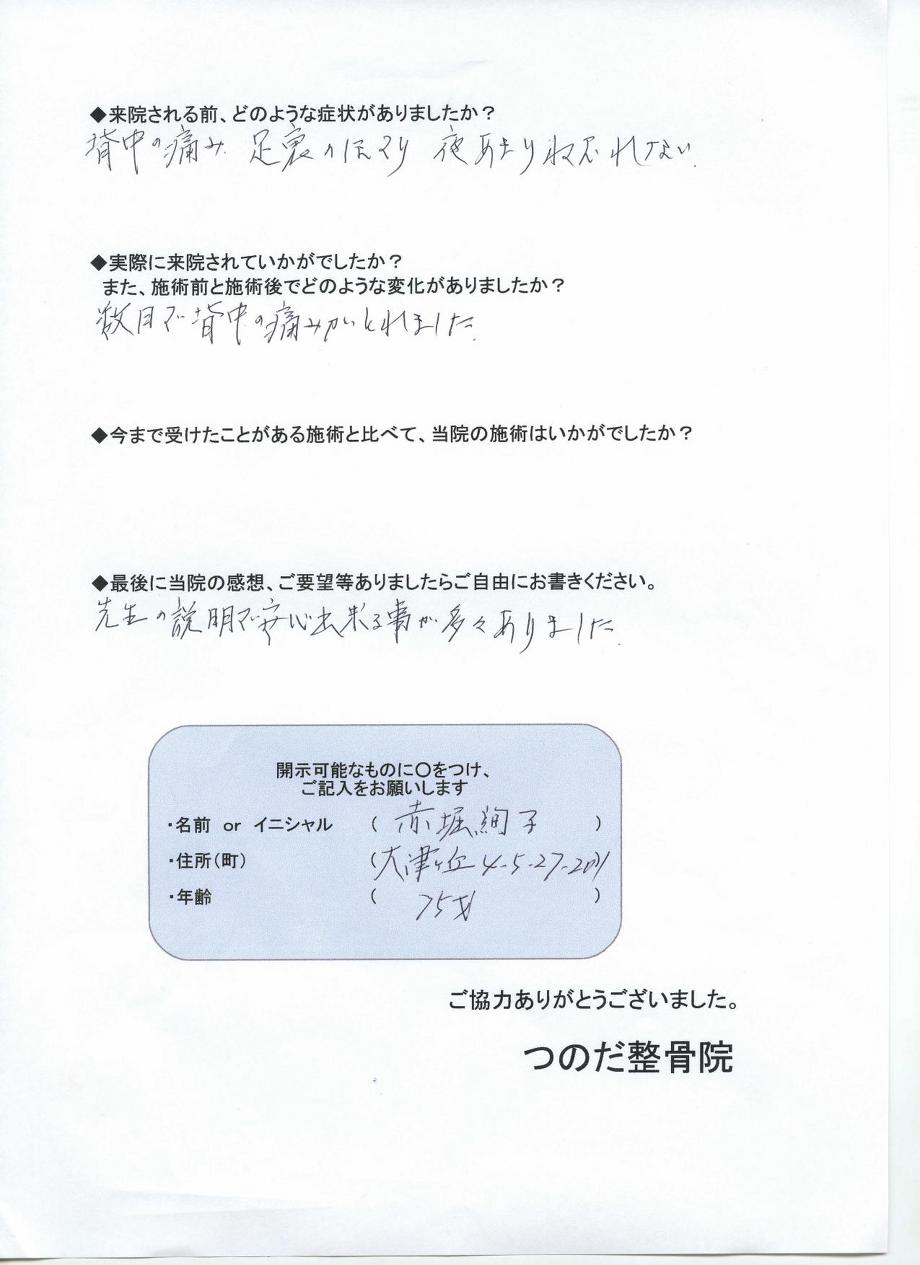 ◆来院される前、どのような症状がありましたか？
背中の痛み 足裏のほてり 夜あまりねむれない
◆実際に来院されていかがでしたか？
また、施術前と施術後でどのような変化がありましたか？
数日で背中の痛みがとれました
◆今まで受けたことがある施術と比べて、当院の施術はいかがでしたか？
◆最後に当院の感想、ご要望等ありましたらご自由にお書きください。
先生の説明で安心出来る事が多々ありました
開示可能なものに〇をつけ、
ご記入をお願いします
・名前 or イニシャル （ 赤堀絢子 ）
・住所（町） （大津ヶ丘4-5-27-201）
・年齢 （ 75才 ）
ご協力ありがとうございました。
つのだ整骨院